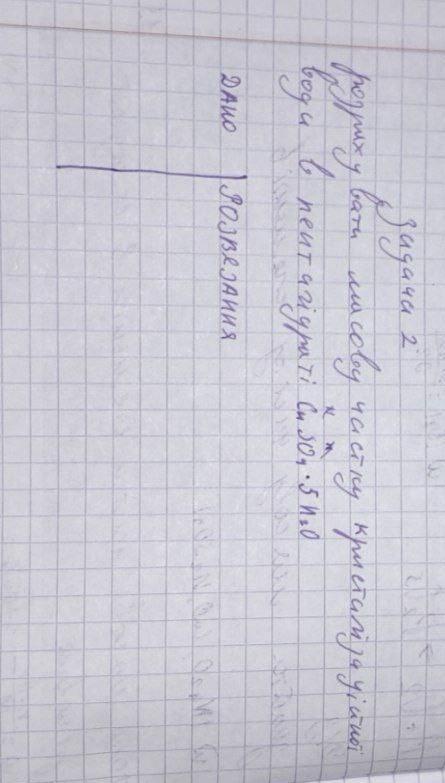 Задача 2
розрахувати масову частку кристалізаційної
води в пентагідраті CuSO₄·5H₂O
ДАНО РОЗВЕЗАНИЯ